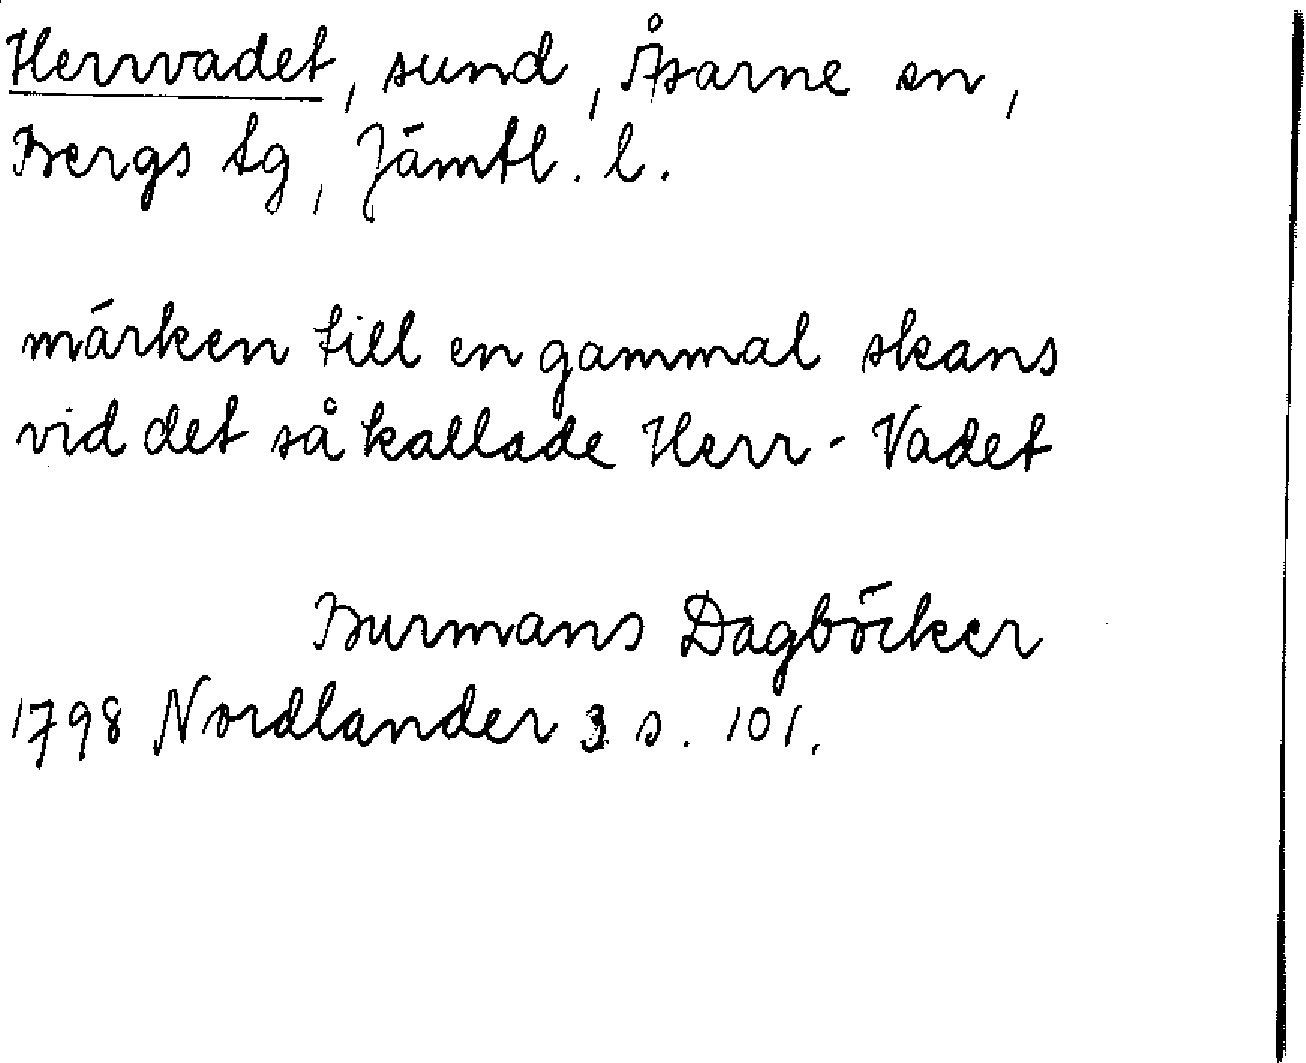 Herrvadet, sund, Åsarne sn,
Bergs tg, Jämtl. l.
märken till en gammal skans
vid det så kallade Herr-Vadet
Burmans Dagböcker
1798 Nordlander 3 s. 101.